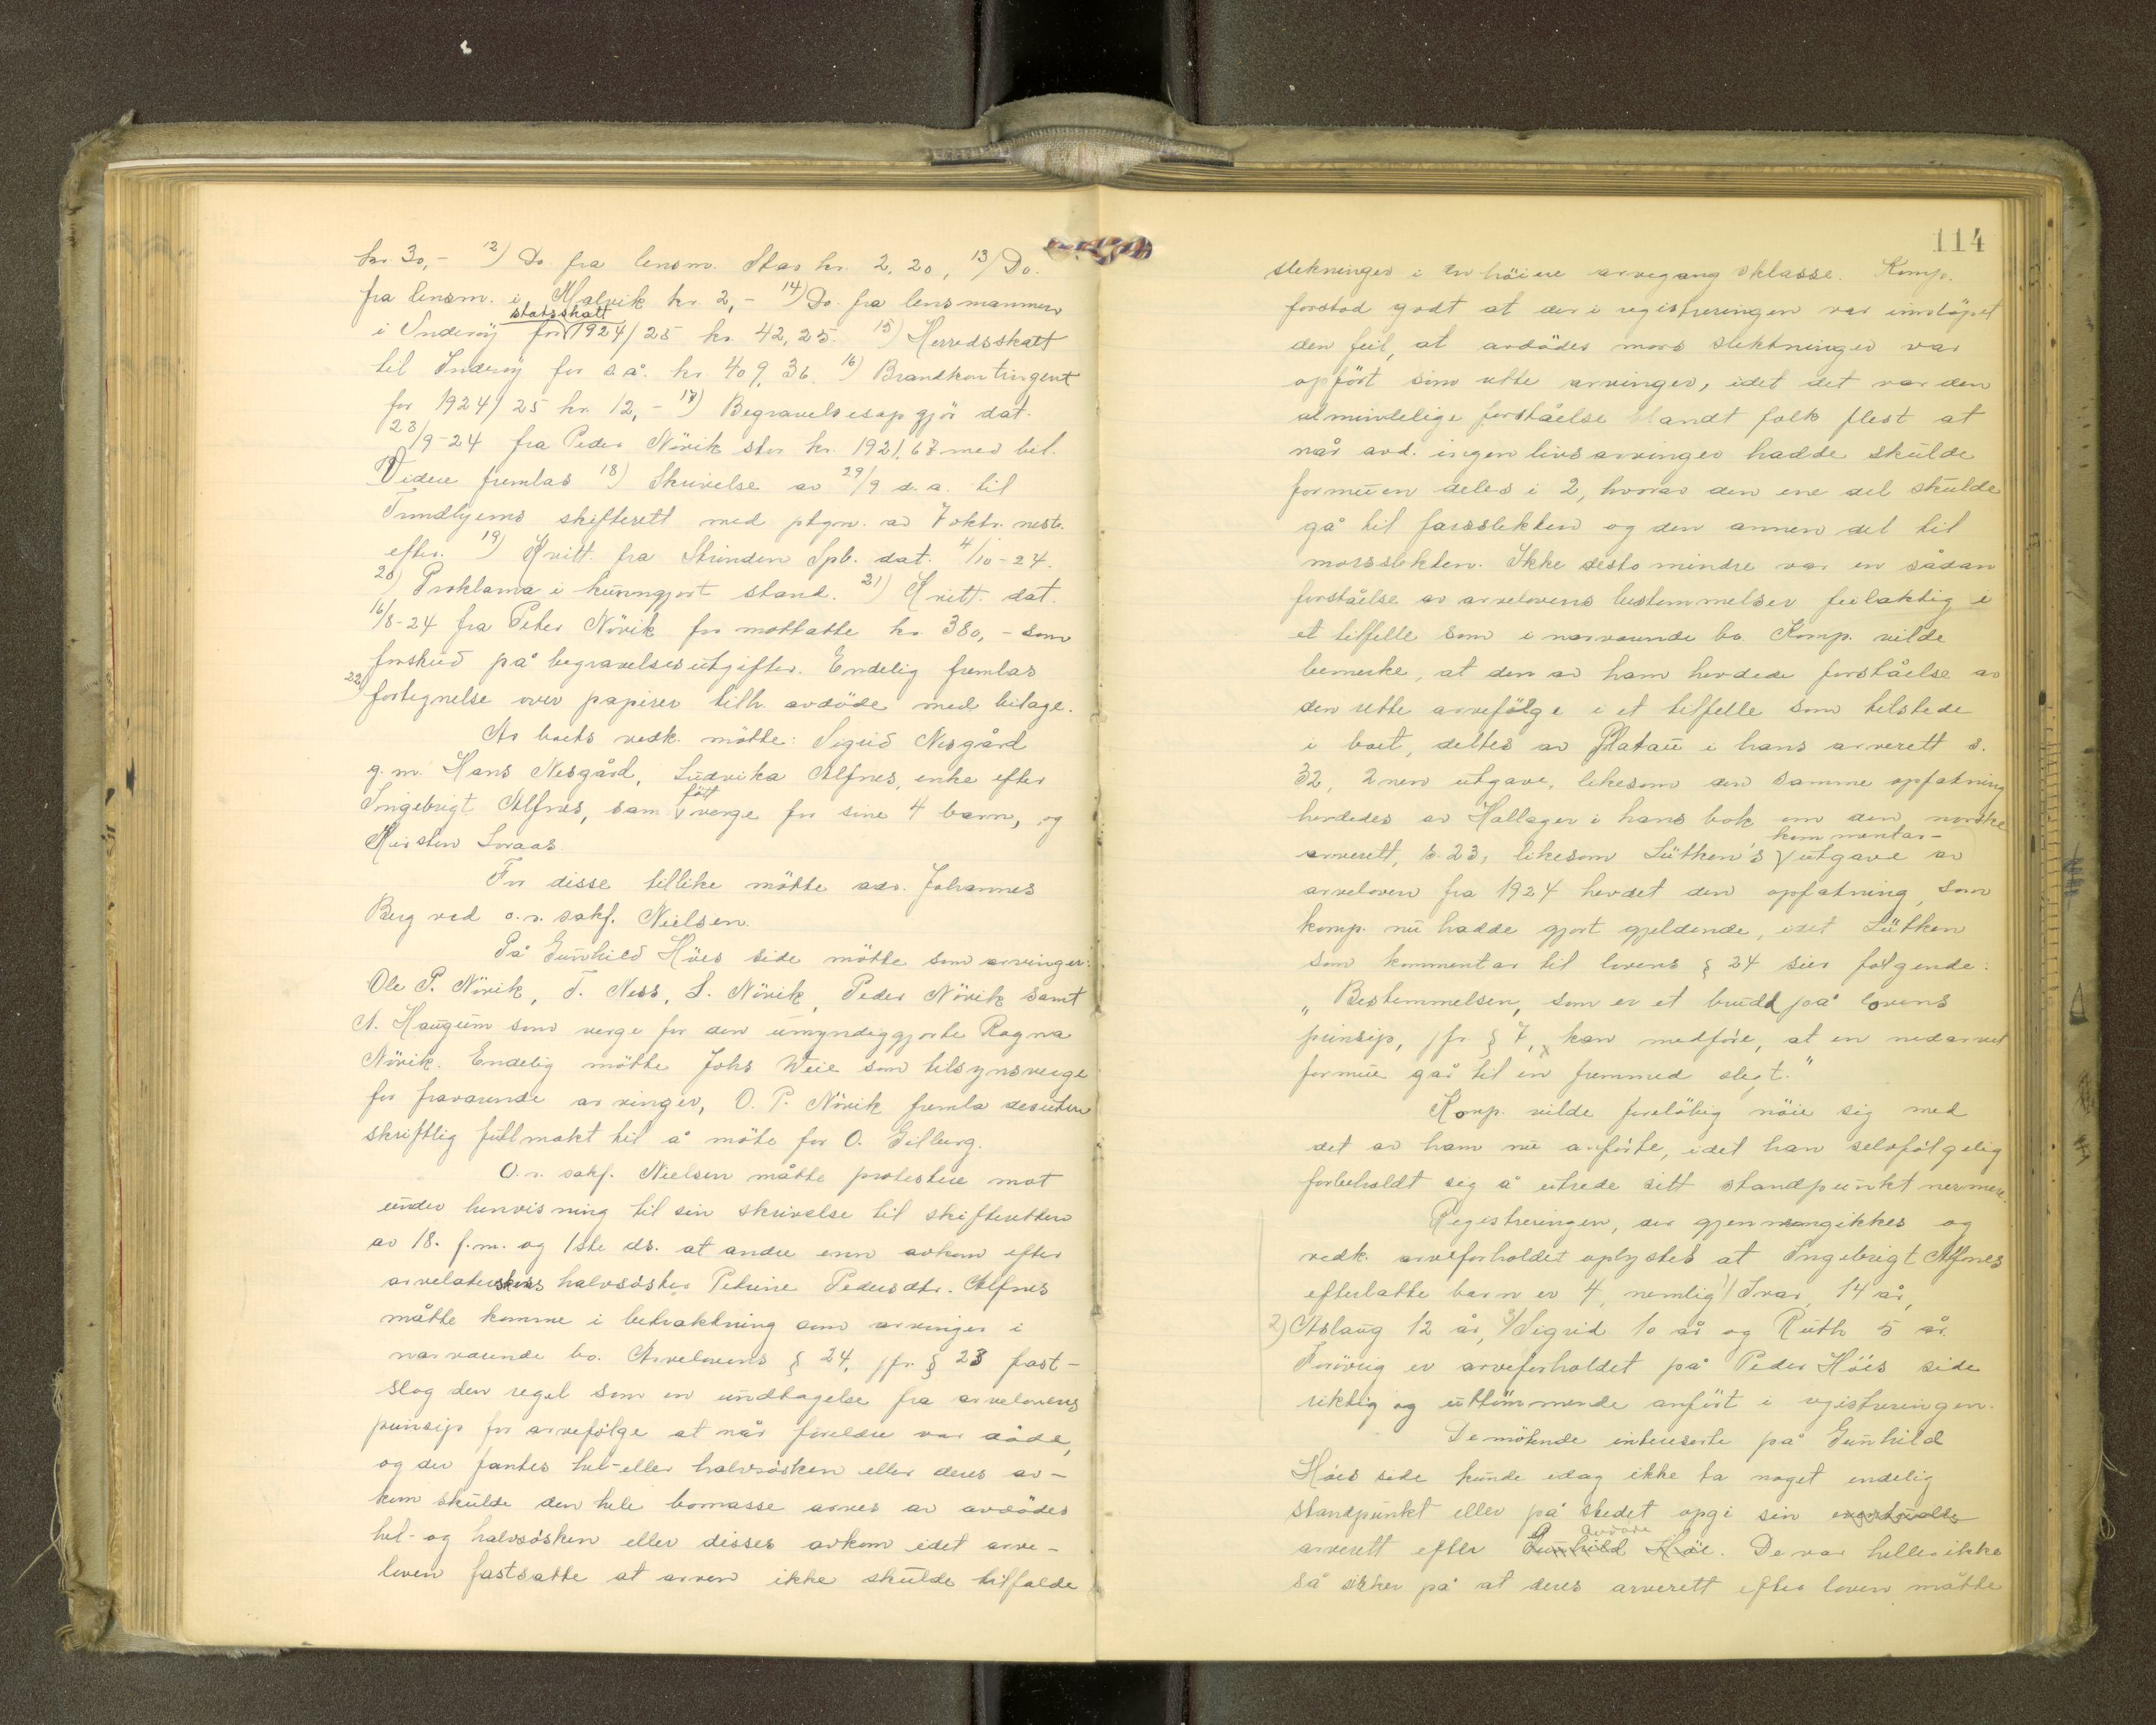 kr. 30,- 12) Do. fra lensm. Stav kr. 2,20, 13) Do.
fra lensm. i Malvik kr. 2,- 14) Do. fra lensmannen
i Inderöy statsskatt for 1924/25 kr. 42,25. 15) Herredsskatt
til Inderöy for s.å. kr. 409,36 16) Brandkontingent
for 1924/25 kr. 12,- 17) Begravelsesopgjör dat.
23/9-24 fra Peder Növik stor kr. 1921,67 med bil.
Videre fremlas 18) Skrivelse av 29/9 d.a. til
Trondhjems skifterett med ptgn. av 7 oktr. nest.
efter. 19) Kvitt. fra Strinden Spb. dat. 4/10-24.
20) Proklama i kunngjort stand. 21) Kvitt. dat.
16/8-24 fra Peter Növik for mottatte kr. 380,- som
forskud på begravelsesutgifter. Endelig fremlas
22) fortegnelse over papirer tilh. avdöde med bilage.
Av boets vedk. mötte: Sigrid Nesgård
g.m. Hans Nesgård, Ludvika Alfnes, enke efter
Ingebrigt Alfnes, som född verge for sine 4 barn, og
Kirsten Loraas.
For disse tillike mötte adv. Johannes
Berg ved o.r. sakf. Nielsen.
På Gunhild Höes side mötte som arvinger:
Ole P. Növik, T. Ness, L. Növik, Peder Növik samt
A. Haugum som verge for den umyndiggjorte Ragna
Növik. Endelig mötte Johs Weie som tilsynsverge
for fraværende arvinger, O. P. Növik fremla desuten
skriftlig fullmakt til å möte for O. Gilberg.
O.r. sakf. Nielsen måtte protestere mot
under henvisning til sin skrivelse til skifteretten
av 18. f.m. og 1ste ds. at andre enn avkom efter
arvelaterskens halvsöster Petrine Pedersdtr. Alfnes
måtte komme i betraktning som arvinger i
nærværende bo. Arvelovens § 24, jfr. § 23 fast-
slog den regel som en undtagelse fra arvelovens
prinsip for arvefölge at når foreldre var döde,
og der fantes hel- eller halvsösken eller deres av-
kom skulde den hele bomasse arves av avdödes
hel- og halvsösken eller disses avkom idet arve-
loven fastsatte at arven ikke skulde tilfalde
114
slektninger i en höiere arvegangsklasse. Komp.
forstod godt at der i registreringen var innlöpet
den feil, at avdödes mors slektninger var
opfört som rette arvinger, idet det var den
almindelige forståelse blandt folk flest at
når avd. ingen livsarvinger hadde skulde
formuen deles i 2, hvorav den ene del skulde
gå til farsslekten og den annen del til
morsslekten. Ikke desto mindre var en sådan
forståelse av arvelovens bestemmelser feilaktig i
et tilfelle som i nærværende bo. Komp. vilde
bemerke, at den av ham hevdede forståelse av
den rette arvefölge i et tilfelle som tilstede
i boet, deltes av Platou i hans arverett s.
32, 2nen utgave, likesom den samme opfatning
hevdedes av Hallager i hans bok om den norske
arverett, s. 23, likesom Lütken's kommentar-utgave av
arveloven fra 1924 hevdet den opfatning, som
komp. nu hadde gjort gjeldende, idet Lütken
som kommentar til lovens § 24 sier fölgende:
"Bestemmelsen, som er et brudd på lovens
prinsip, jfr. § 7, kan medföre, at en nedarvet
formue går til en fremmed slegt."
Komp. vilde forelöbig nöie sig med
det av ham nu anförte, idet han selvfölgelig
forbeholdt sig å utrede sitt standpunkt nermere.
Registreringen, der gjennemgikkes og
vedk. arveforholdet oplystes at Ingebrigt Alfnes
efterlatte barn er 4, nemlig 1) Ivar, 14 år,
2) Aslaug 12 år, 3) Sigrid 10 år og Ruth 5 år.
Forövrig er arveforholdet på Peder Höes side
riktig og uttömmende anfört i registreringen.
De mötende interesserte på Gunhild
Höes side kunde idag ikke ta noget endelig
standpunkt eller på stedet opgi sin eventuelle
arverett efter Gunhild Höe avdöde. De var heller ikke
så sikker på at deres arverett efter loven måtte